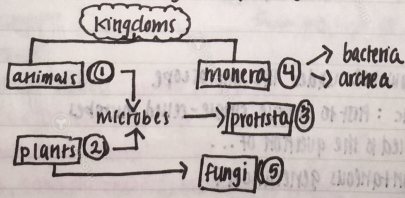 Kingdoms
animals ① monera ④ → bacteria
→ archea
microbes → protista ③
plants ②
fungi ⑤